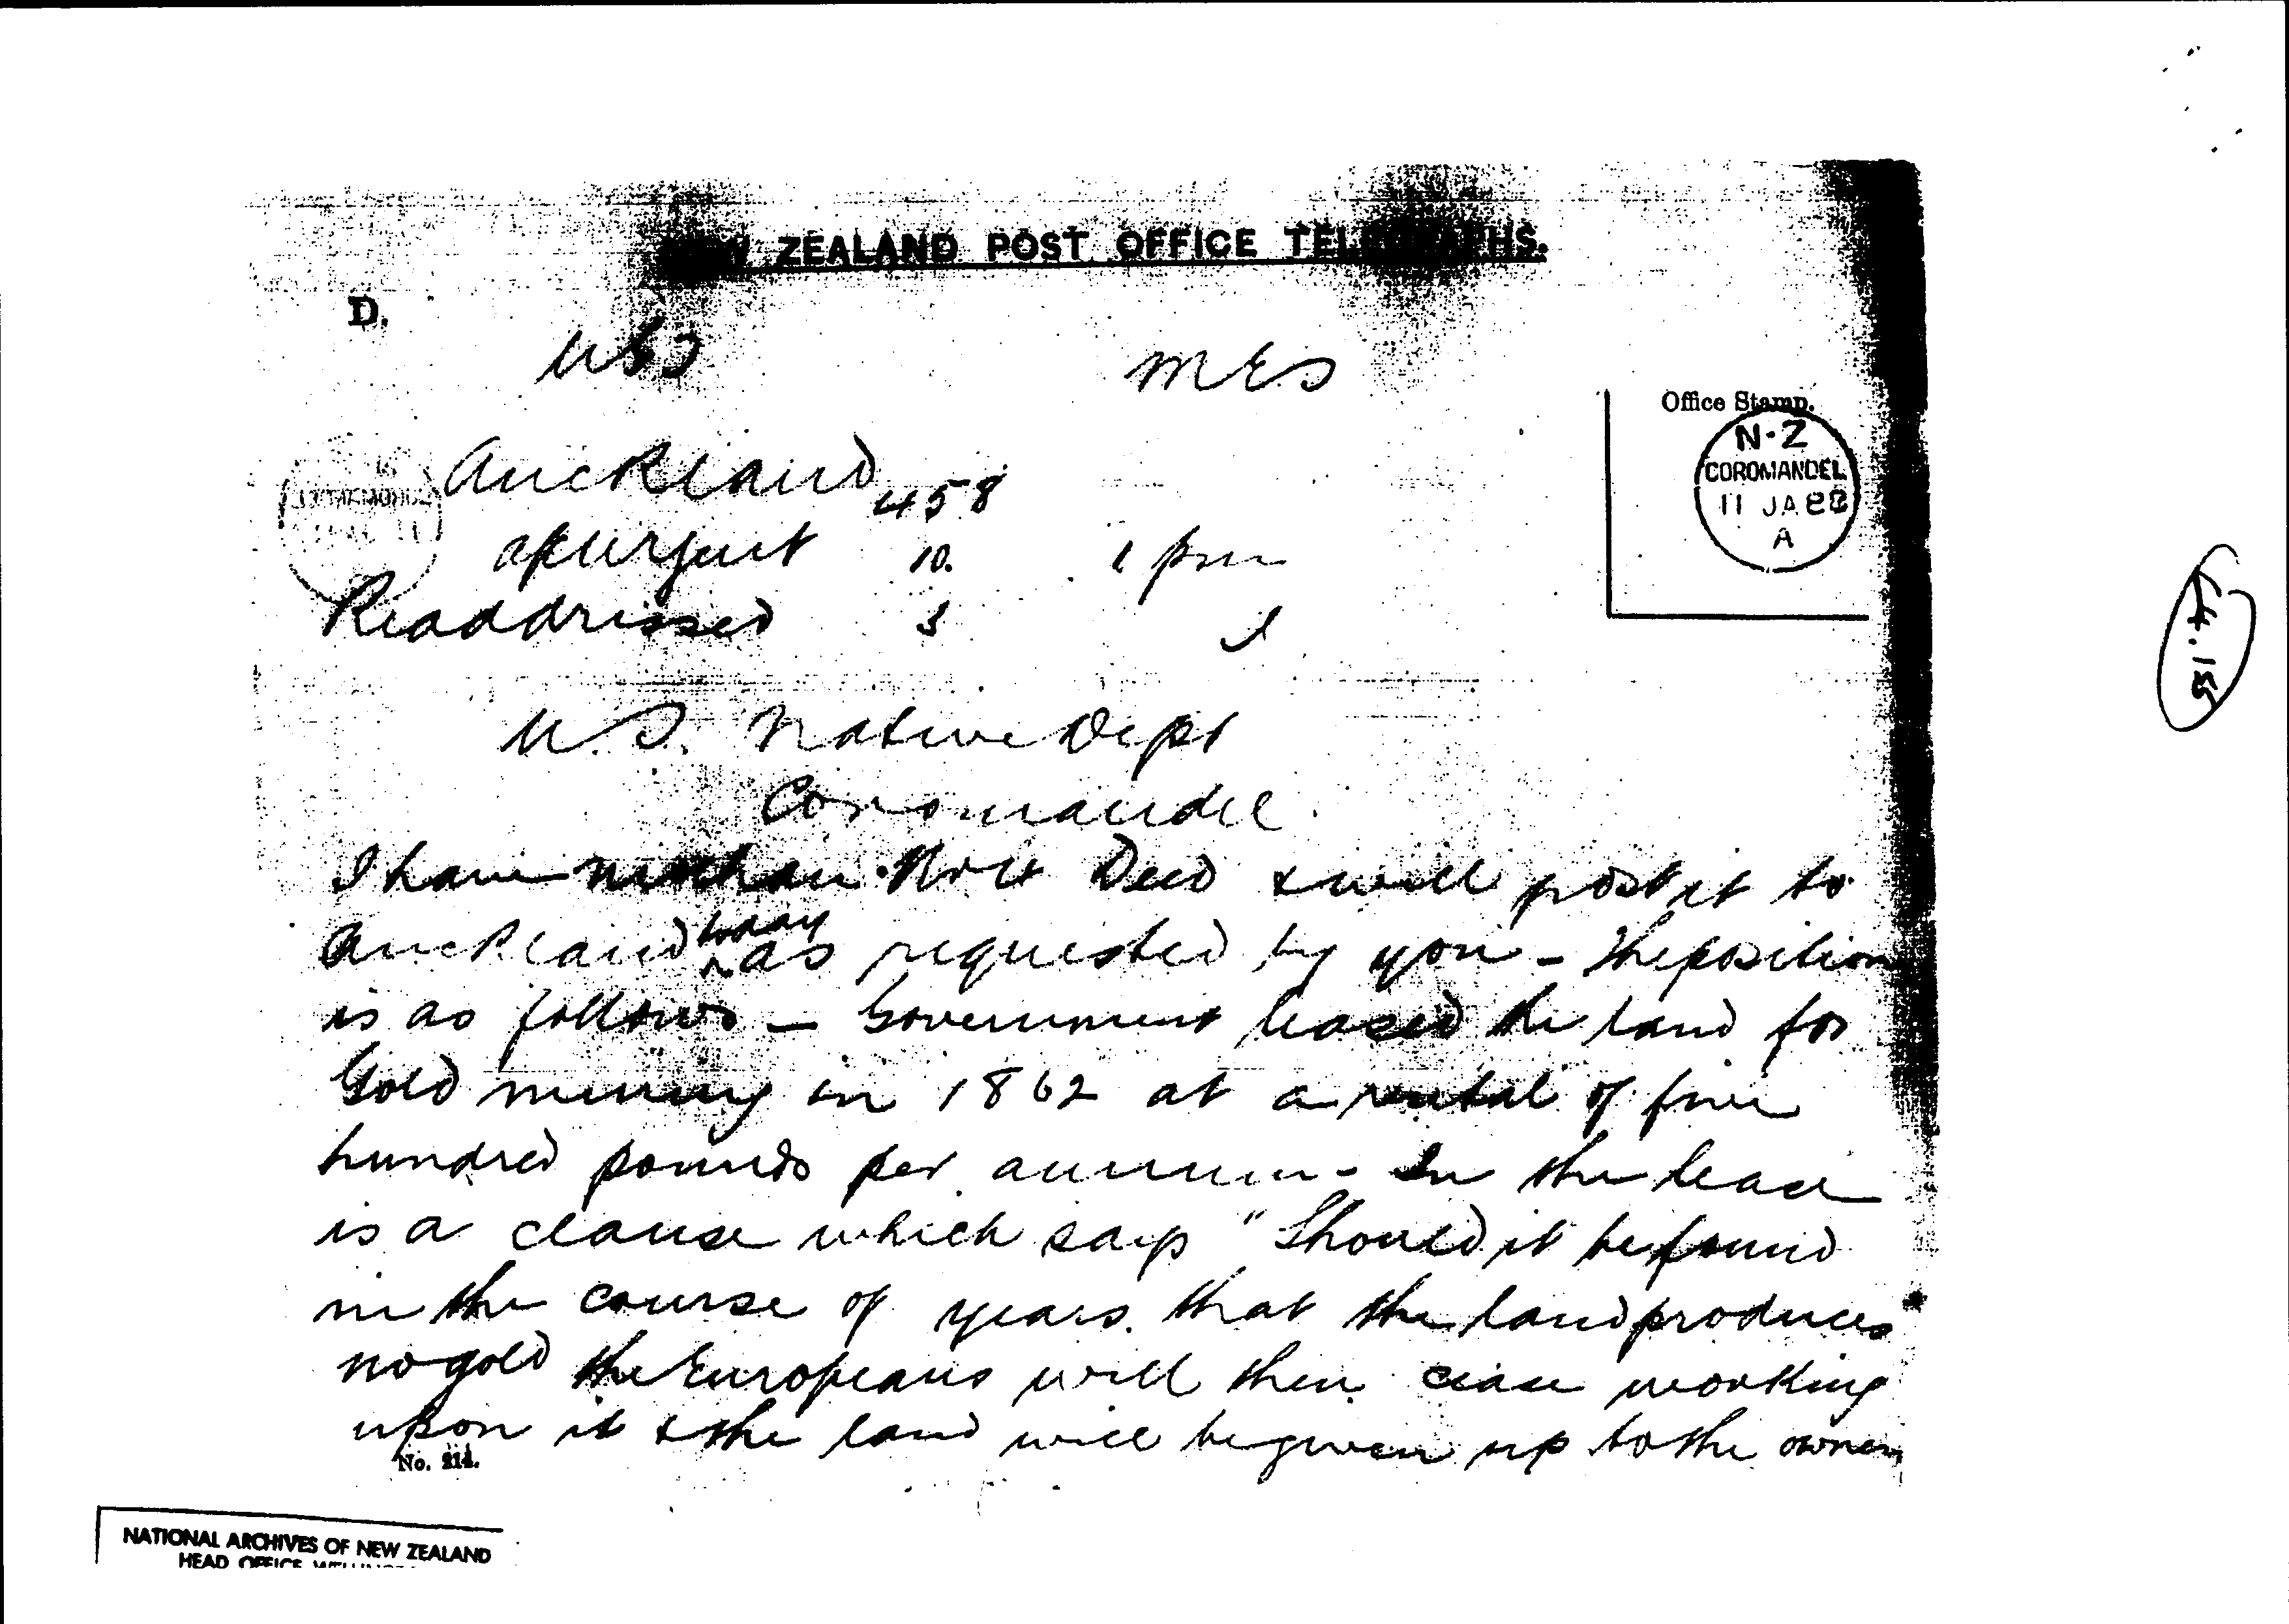 NEW ZEALAND POST OFFICE TELEGRAPHS.
D.
MES
Office Stamp.
N·Z
COROMANDEL
11 JA 88
A
Auckland
458
urgent 10. 1 pm
Readdressed 3
14.15
U.S. Native Dept
Coromandel
I have Deed & will post it to
Auckland today as requested by you – The position
is as follows – Government leased the land for
Gold mining in 1862 at a rental of five
hundred pounds per annum – In the lease
is a clause which says "Should it be found
in the course of years that the land produces
no gold the Europeans will then cease working
upon it & the land will be given up to the owners
No. 214.
NATIONAL ARCHIVES OF NEW ZEALAND
HEAD OFFICE